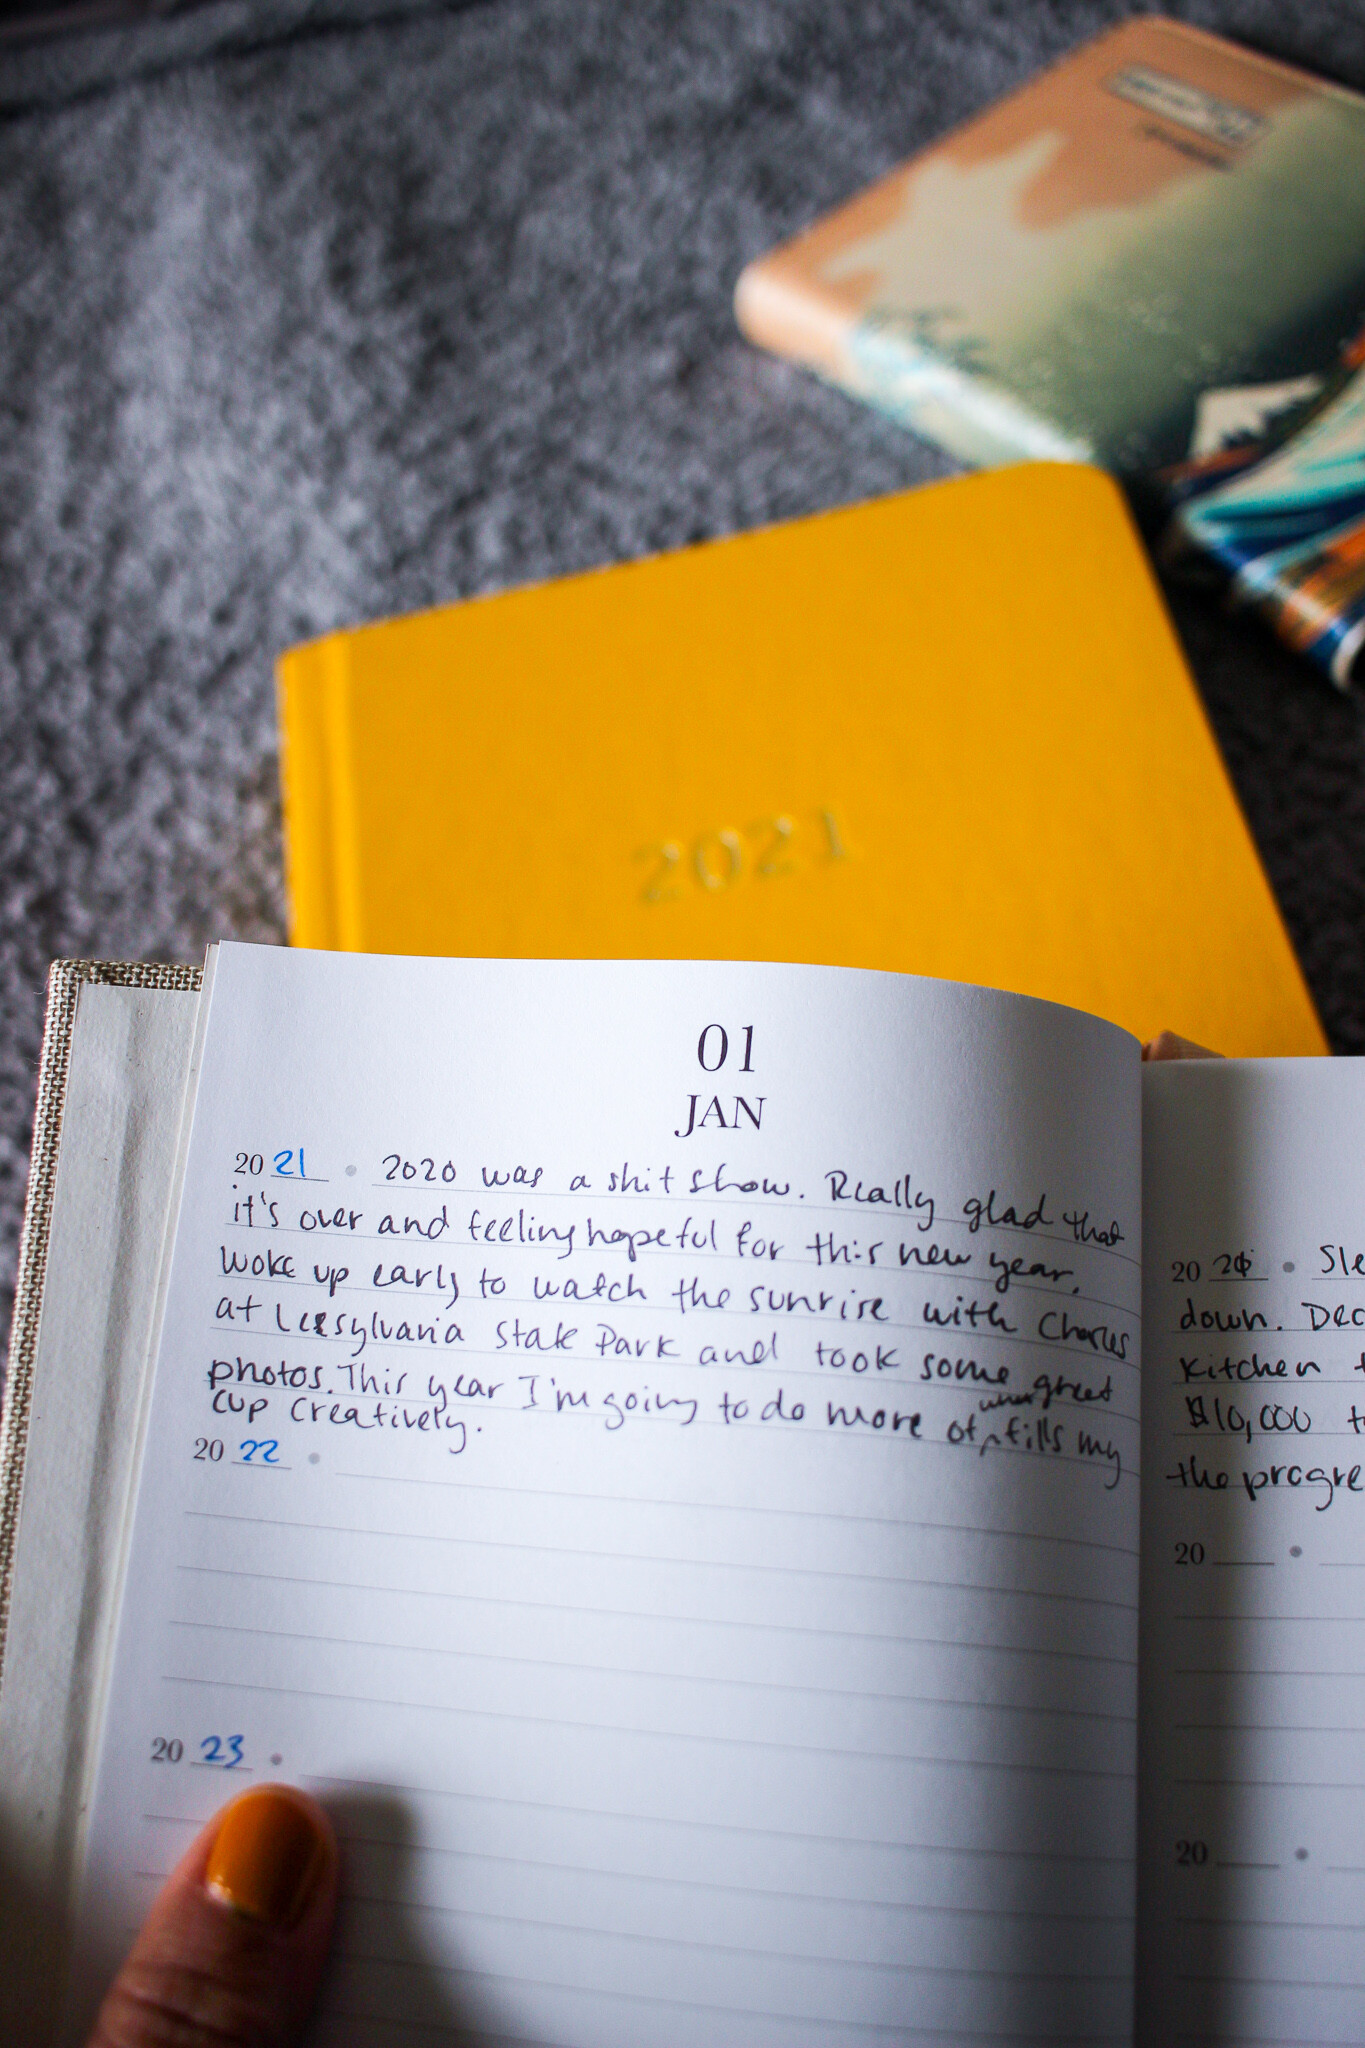 2021
01
JAN
2021 • 2020 was a shit show. Really glad that
it's over and feeling hopeful for this new year.
Woke up early to watch the sunrise with Charles
at Leesylvania State Park and took some great
photos. This year I'm going to do more of what fills my
cup creatively.
2022 •
2023 •
20 • Sle
down. Dec
Kitchen t
$10,000 t
the progre
20 •
20 •